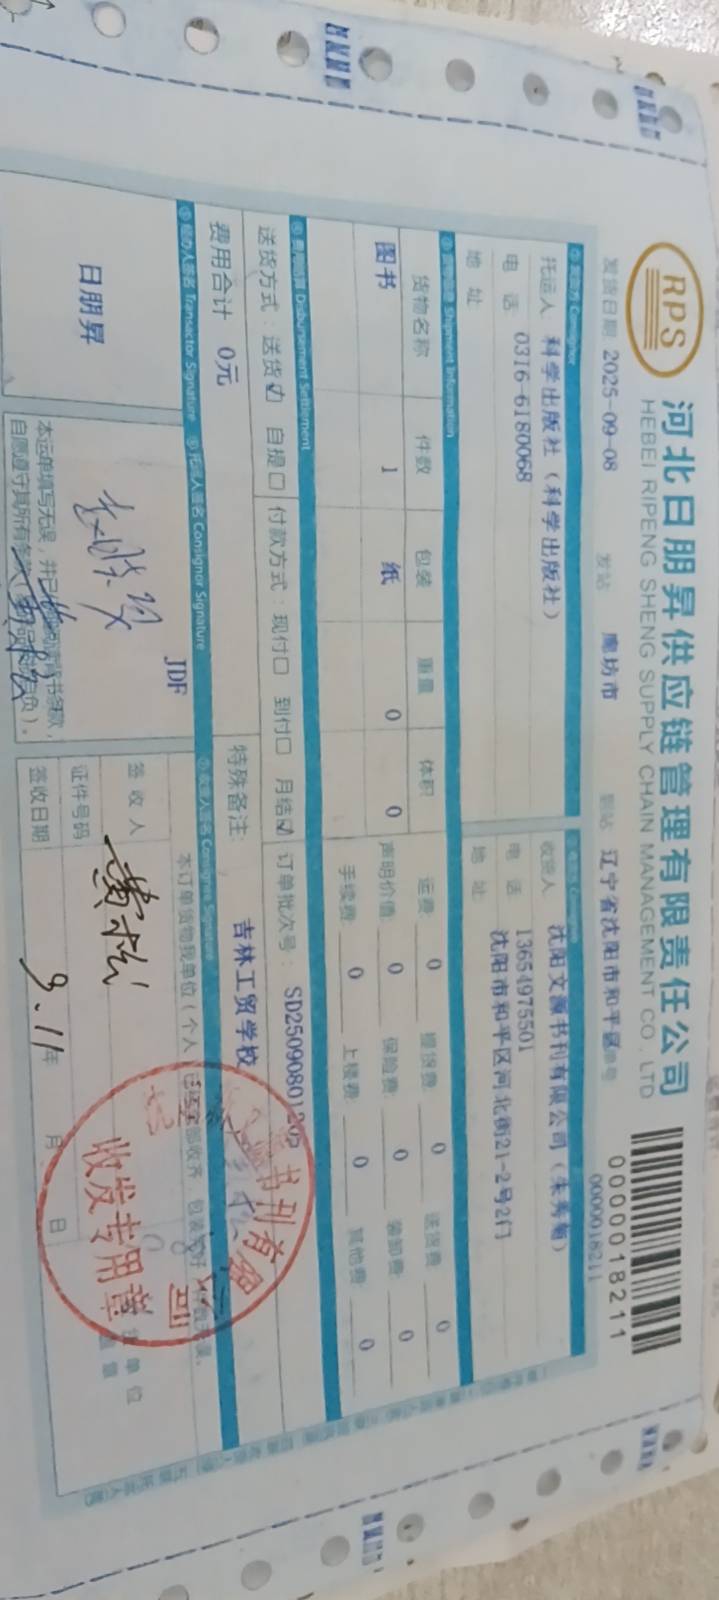 RPS
河北日朋昇供应链管理有限责任公司
HEBEI RIPENG SHENG SUPPLY CHAIN MANAGEMENT CO., LTD
0000018211
0000018211
发货日期 2025-09-08 发站 廊坊市 到站 辽宁省沈阳市和平区
① 发货方 Consignor
托运人 科学出版社（科学出版社） 收货人 沈阳文源书刊有限公司（朱秀菊）
电 话 0316-6180068 电 话 13654975501
地 址 地 址 沈阳市和平区河北街21-2号2门
③ 货物信息 Shipment Information
货物名称 件数 包装 重量 体积 运费: 0 提货费: 0 送货费: 0
图书 1 纸 0 0 声明价值: 0 保险费: 0 装卸费: 0
手续费: 0 上楼费: 0 其他费: 0
④ 费用结算 Disbursement Settlement
送货方式：送货☑ 自提☐ 付款方式：现付☐ 到付☐ 月结☑ 订单批次号：
费用合计 0元 特殊备注: 吉林工贸学校
⑤ 经办人签名 Transactor Signature ⑥ 托运人签名 Consignor Signature ⑦ 收货人签名 Consignee Signature
日朋昇
JDF
本运单填写无误，并已
自愿遵守其所有条款
本订单货物我单位（个人
签 收 人 黄松
证件号码
签收日期 9.11 年 月 日
收发专用章